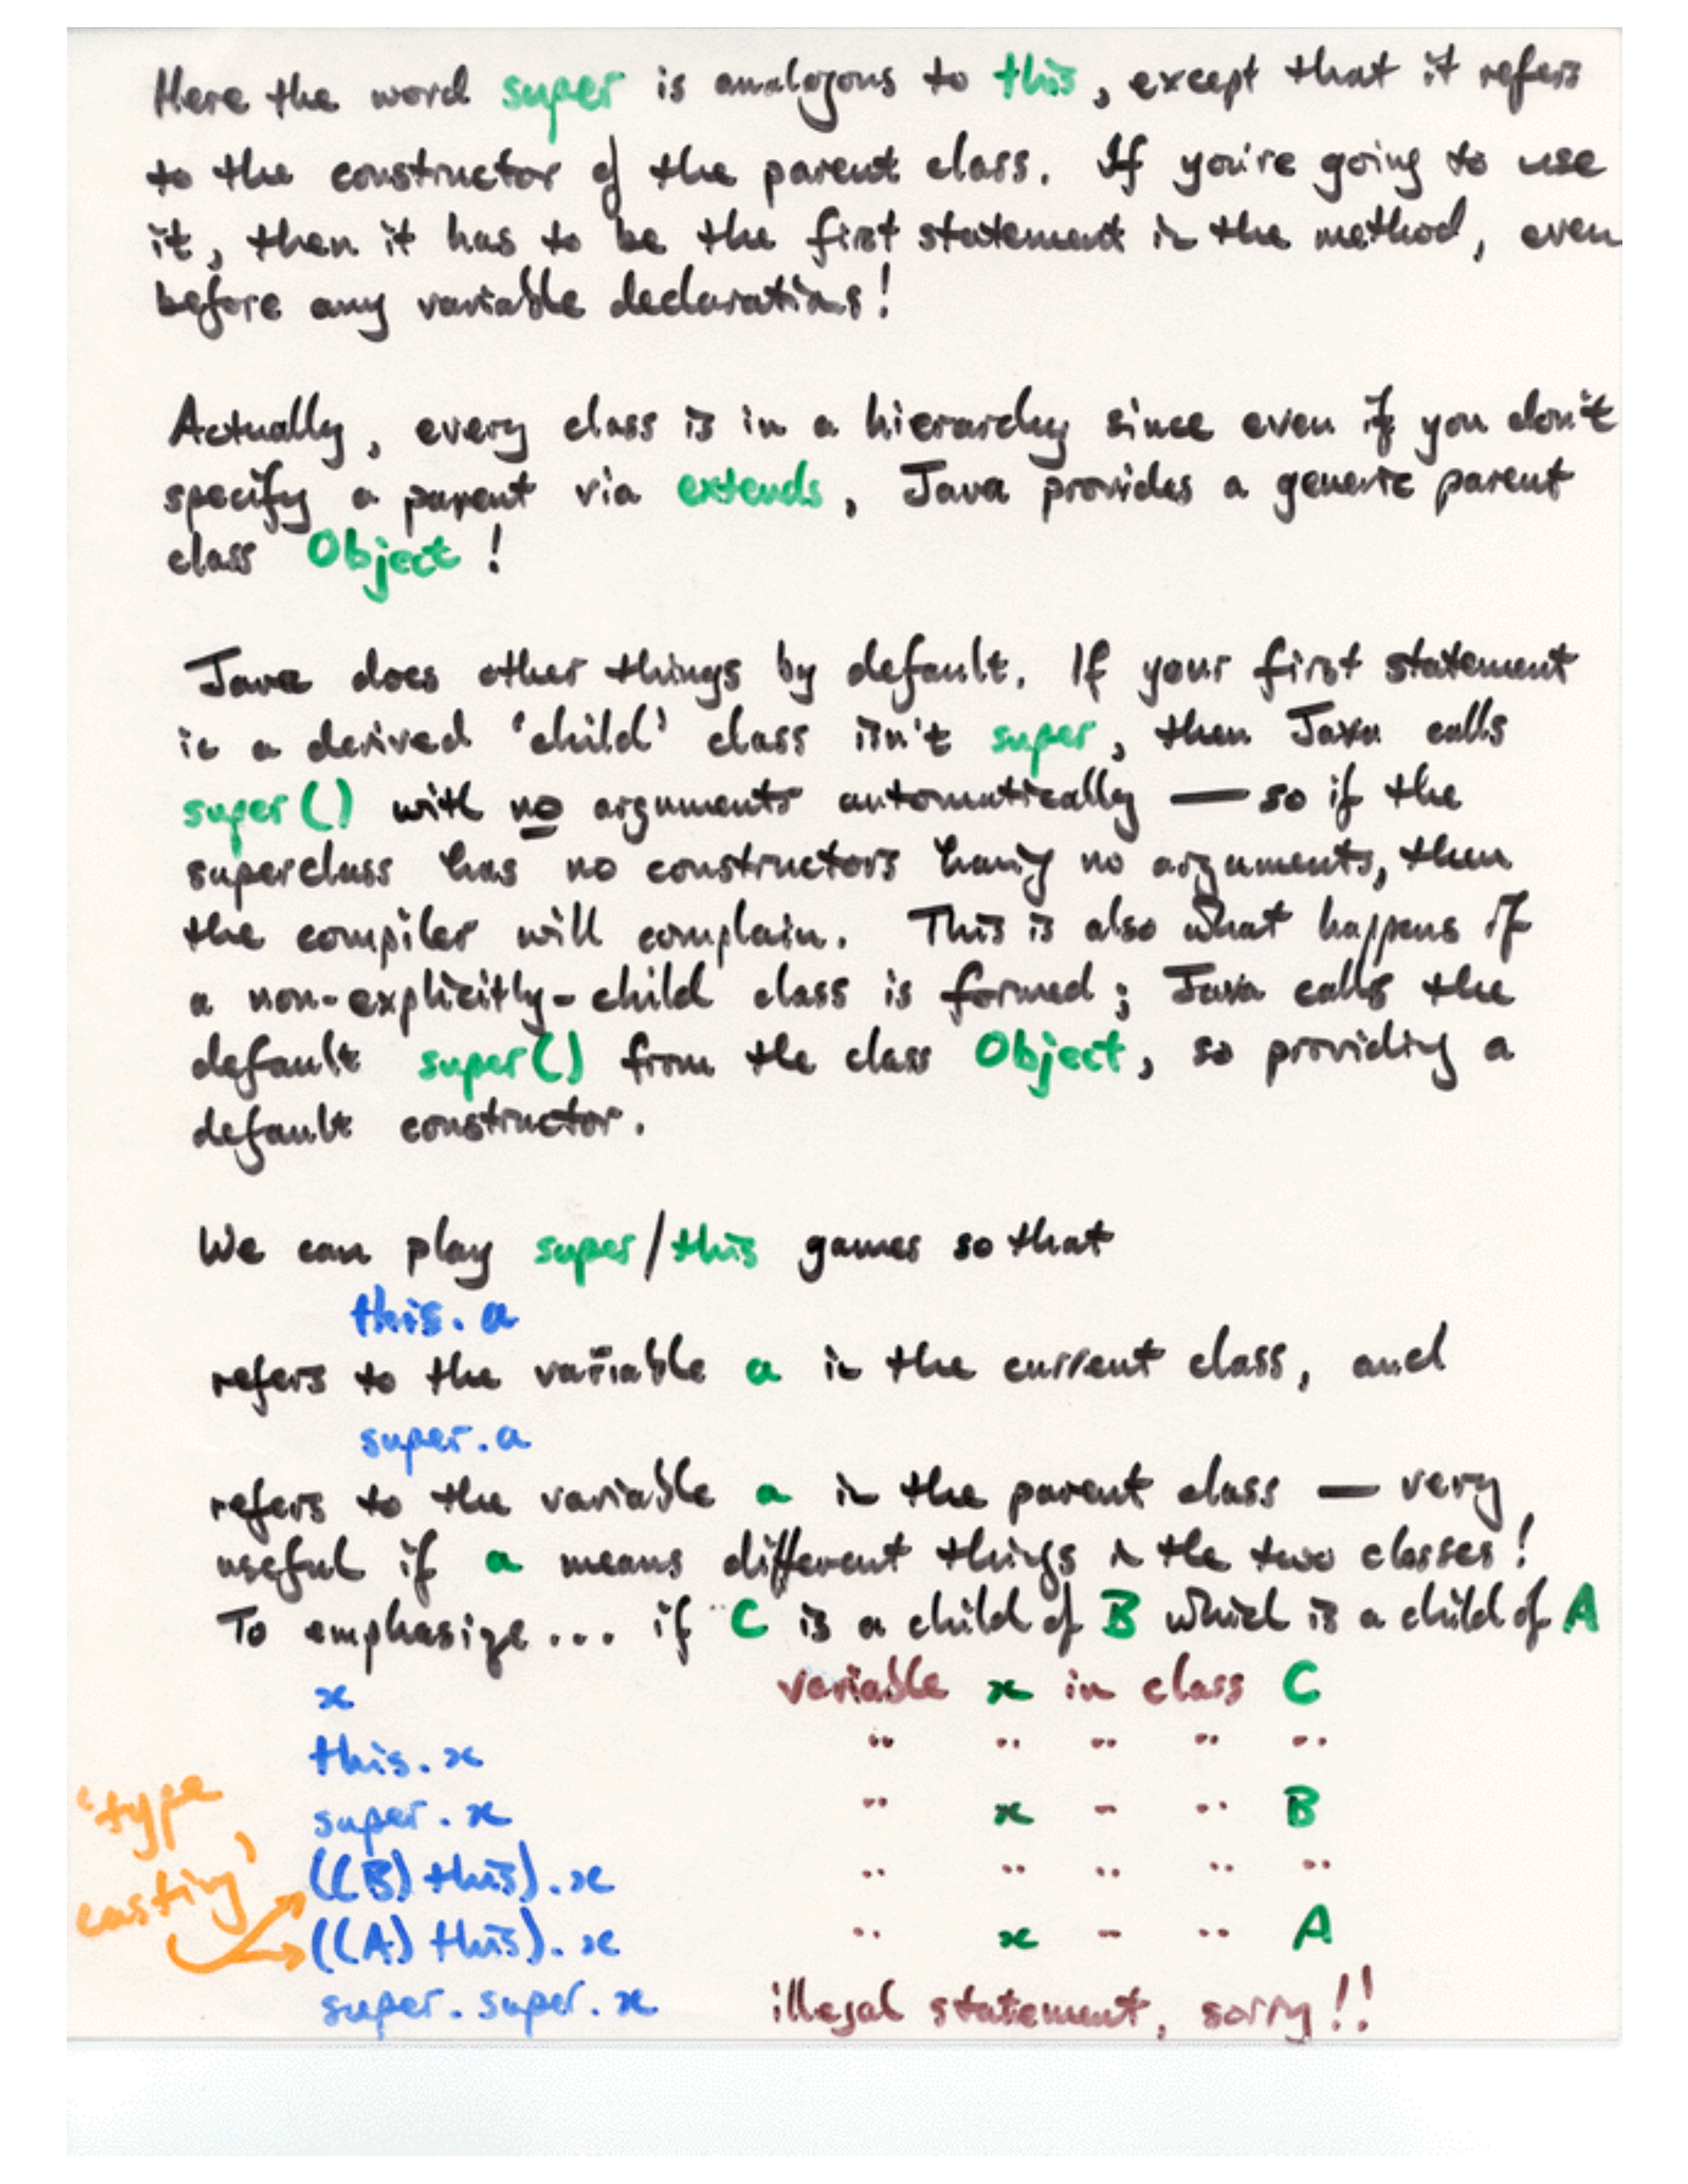 Here the word super is analogous to this, except that it refers
to the constructor of the parent class. If you're going to use
it, then it has to be the first statement in the method, even
before any variable declarations!
Actually, every class is in a hierarchy since even if you don't
specify a parent via extends, Java provides a generic parent
class Object!
Java does other things by default. If your first statement
in a derived 'child' class isn't super, then Java calls
super() with no arguments automatically — so if the
superclass has no constructors having no arguments, then
the compiler will complain. This is also what happens if
a non-explicitly-child class is formed; Java calls the
default super() from the class Object, so providing a
default constructor.
We can play super/this games so that
this.a
refers to the variable a in the current class, and
super.a
refers to the variable a in the parent class — very
useful if a means different things in the two classes!
To emphasize... if C is a child of B which is a child of A
x variable x in class C
this.x " " " " "
'type
super.x " x " " B
casting'
((B) this).x " " " " "
((A) this).x " x " " A
super.super.x illegal statement, sorry!!